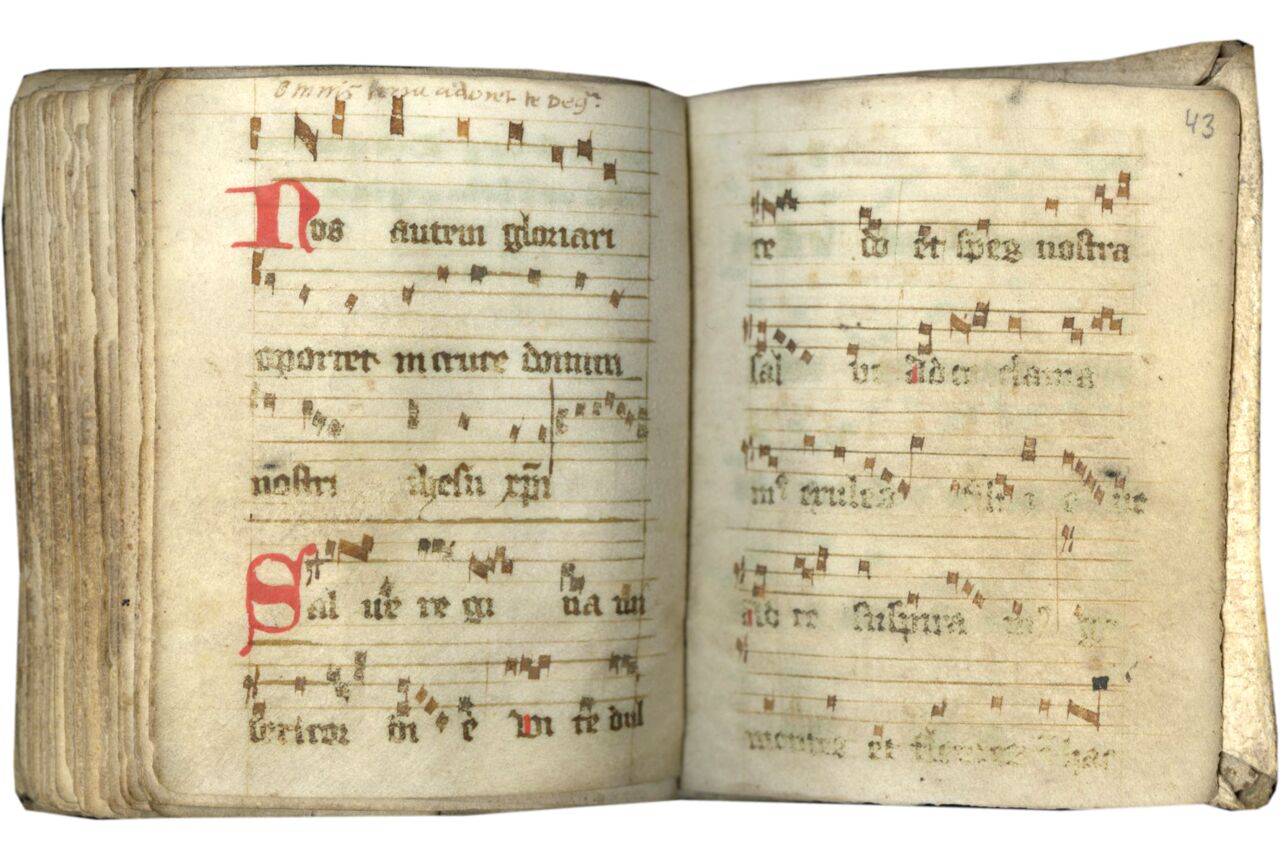 Omnis terra adoret te
Nos autem gloriari
oportet in cruce domini
nostri ihesu xpi
Sal ue re gi na mi
sericor di e vi te dul
43
ce do et spes nostra
sal ue Ad te clama
m9 exules filii e ue
Ad te suspira m9 ge
mentes et flentes i hac